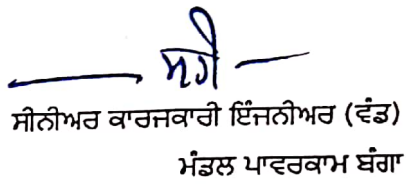 ਸਹੀ
ਸੀਨੀਅਰ ਕਾਰਜਕਾਰੀ ਇੰਜਨੀਅਰ (ਵੰਡ)
ਮੰਡਲ ਪਾਵਰਕਾਮ ਬੰਗਾ